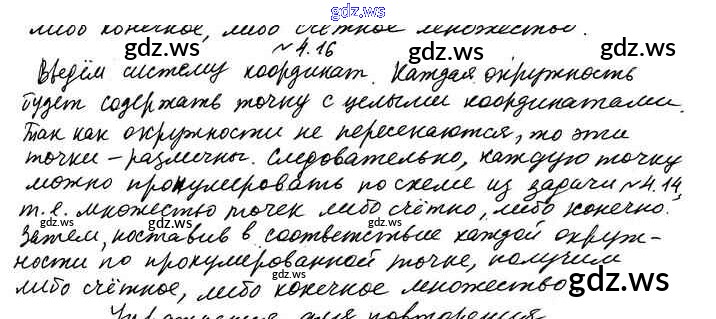 gdz.ws
либо конечное, либо счётное множество.
gdz.ws № 4.16 gdz.ws
Введём систему координат. Каждая окружность
будет содержать точку с целыми координатами.
Так как окружности не пересекаются, то эти
точки – различны. Следовательно, каждую точку
можно пронумеровать по схеме из задачи № 4.14,
т.е. множество точек либо счётно, либо конечно.
gdz.ws gdz.ws gdz.ws
Затем, поставив в соответствие каждой окруж-
ности по пронумерованной точке, получим
gdz.ws
либо счётное, либо конечное множество
gdz.ws gdz.ws
Упражнения для повторения